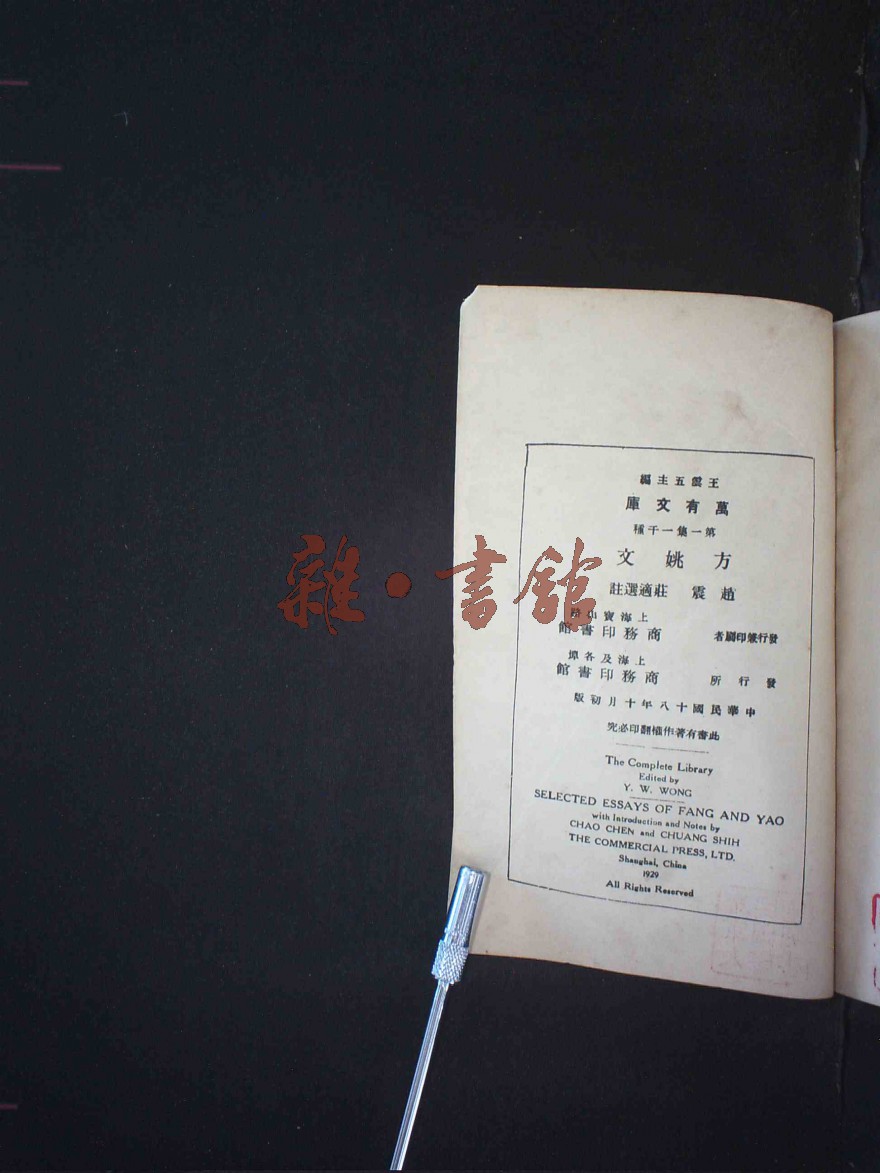 王雲五主編
萬有文庫
第一集一千種
方姚文
趙震 莊適選註
上海寶山路
發行兼印刷者 商務印書館
上海及各埠
發行所 商務印書館
中華民國十八年十月初版
此書有著作權翻印必究
The Complete Library
Edited by
Y. W. WONG
SELECTED ESSAYS OF FANG AND YAO
with Introduction and Notes by
CHAO CHEN and CHUANG SHIH
THE COMMERCIAL PRESS, LTD.
Shanghai, China
1929
All Rights Reserved
雜·書館